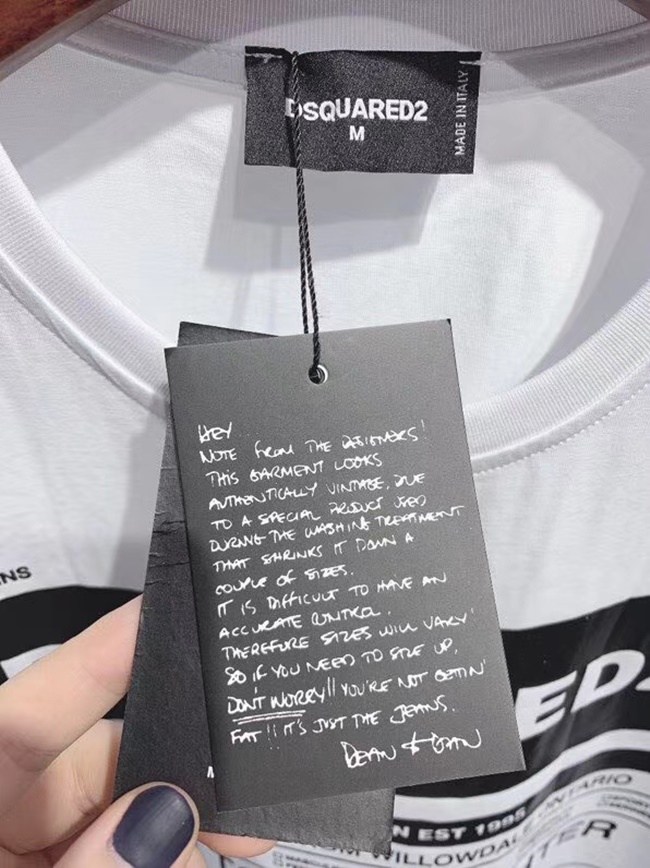 DSQUARED2
M
MADE IN ITALY
HEY
NOTE FROM THE DESIGNERS!
THIS GARMENT LOOKS
AUTHENTICALLY VINTAGE, DUE
TO A SPECIAL PRODUCT USED
DURING THE WASHING TREATMENT
THAT SHRINKS IT DOWN A
COUPLE OF SIZES.
IT IS DIFFICULT TO HAVE AN
ACCURATE CONTROL.
THEREFORE SIZES WILL VARY!
SO IF YOU NEED TO SIZE UP,
DON'T WORRY!! YOU'RE NOT GETTIN'
FAT!! IT'S JUST THE JEANS.
DEAN & DAN
NS
ED2
N EST 1995
ONTARIO
WILLOWDALE